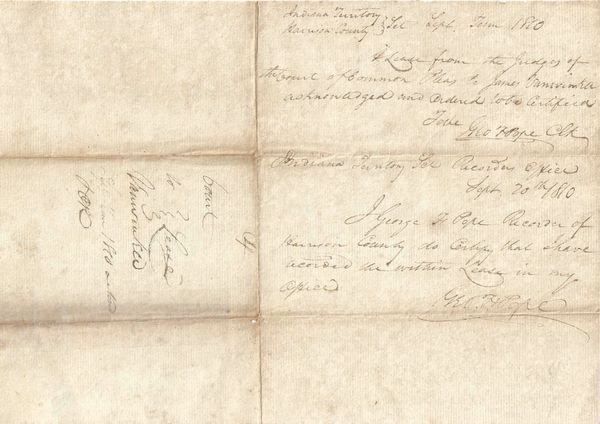 Indiana Territory
Harrison County } Sct Sept Term 1810
A Lease from the Judges of
the Court of Common Pleas to James Vanwinkle
acknowledged and Ordered to be Certified
Teste Geo F Pope Clk
Indiana Territory Sct Recorders Office
Sept 20th 1810
I George F Pope Recorder of
Harrison County do Certify that I have
recorded the within Lease in my
Office
Geo F Pope
Court
to } Lease
Vanwinkle